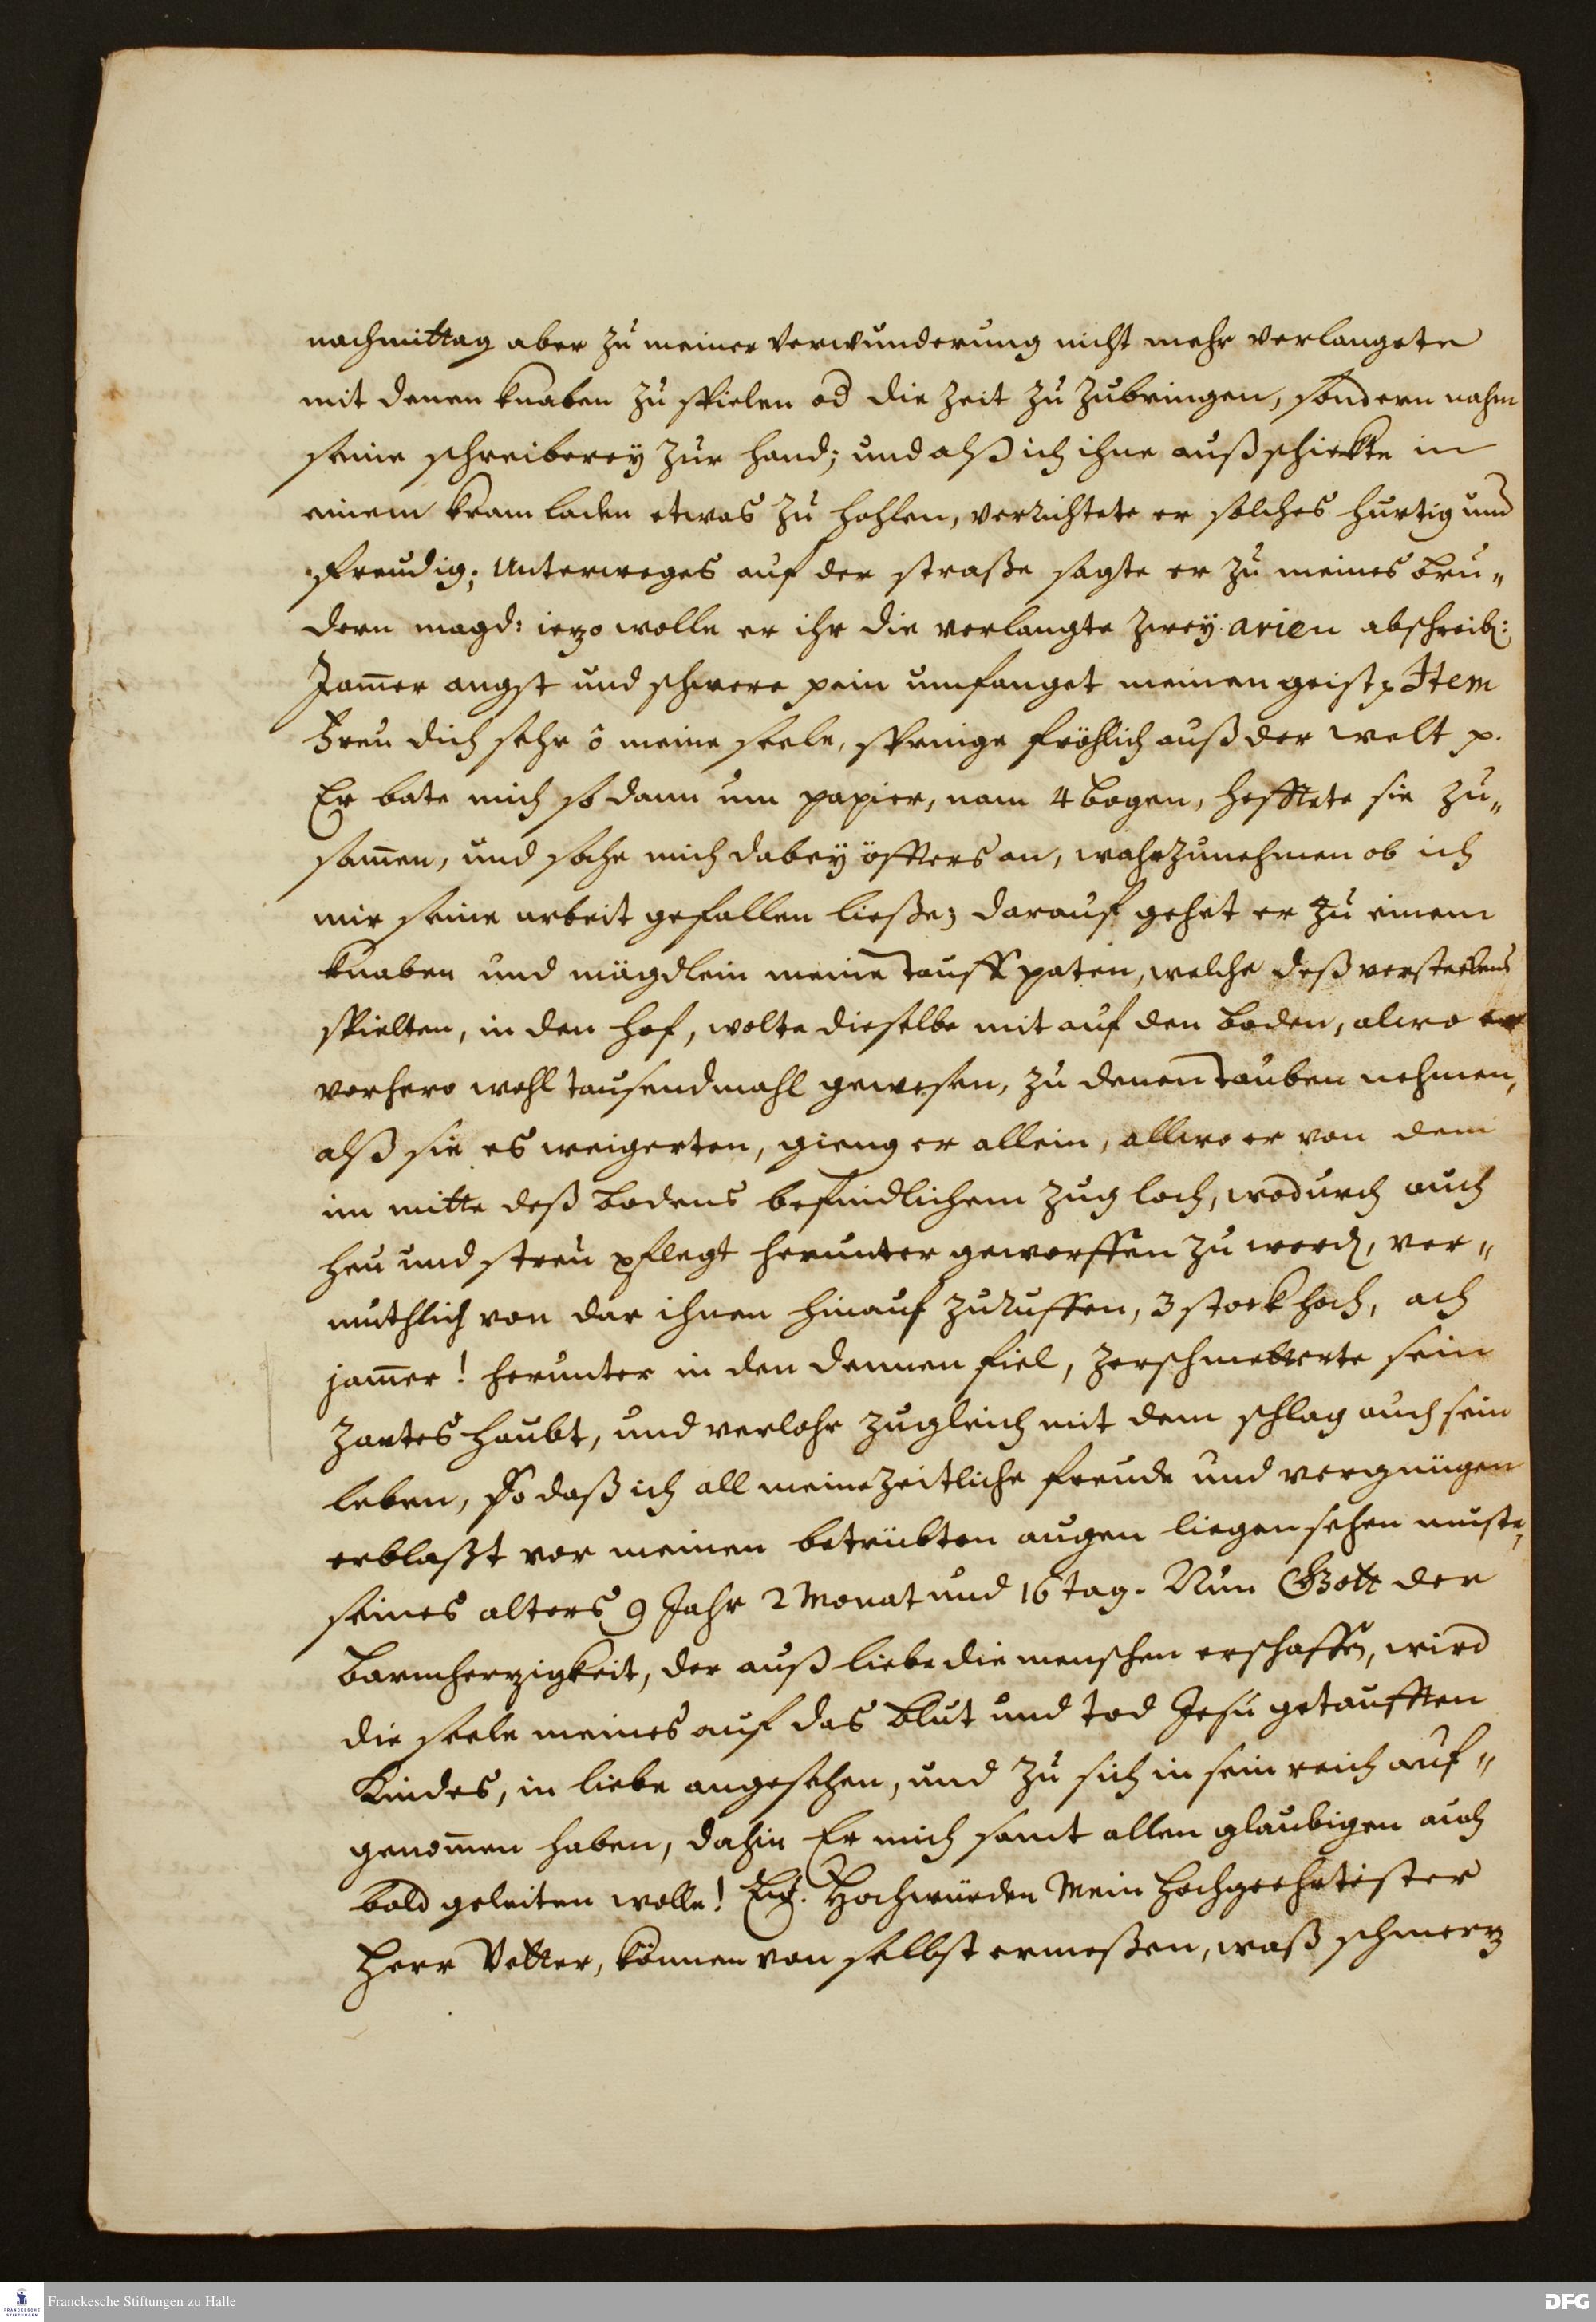 nachmittag aber zu meiner verwunderung nicht mehr verlangete
mit denen knaben zu spielen od die zeit zu zubringen, sondern nahm
seine schreiberey zur hand; und alß ich ihne außschickte in
einem kramladen etwas zu hohlen, verrichtete er solches hurtig und
freudig; Unterweges auf der straße sagte er zu meines bru„
dern magd: iezo wolle er ihr die verlangte zwey arien abschreib:
Jam̄er angst und schwere pein umfanget meinen geist p Item
Freu dich sehr ô meine seele, springe fröhlich auß der welt p.
Er bate mich so dann um papier, nam 4 bogen, hefftete sie zu„
sam̄en, und sahe mich dabey öffters an, wahrzunehmen ob ich
mir seine arbeit gefallen ließe; darauf gehet er zu einem
knaben und mägdlein meine tauff paten, welche deß versteckens
spielten, in den hof, wolte dieselbe mit auf den boden, alwo er
vorhero wohl tausendmahl gewesen, zu denen tauben nehmen,
alß sie es weigerten, gieng er allein, allwo er von dem
im mitte deß bodens befindlichem zug loch, wodurch auch
heu und streu pflegt herunter geworffen zu werd, ver„
muthlich von dar ihnen hinauf zuruffen, 3 stock hoch, ach
jam̄er! herunter in den dennen fiel, zerschmetterte sein
zartes haubt, und verlohr zugleich mit dem schlag auch sein
leben, so daß ich all meine zeitliche freude und vergnügen
erblaßt vor meinen betrübten augen liegen sehen muste,
seines alters 9 Jahr 2 Monat und 16 tag. Nun Gott der
barmherzigkeit, der auß liebe die menschen erschaffen, wird
die seele meines auf das blut und tod Jesu getaufften
Kindes, in liebe angesehen, und zu sich in sein reich auf„
genom̄en haben, dahin Er mich samt allen glaubigen auch
bald geleiten wolle! Ew. Hochwürden Mein hochgeehrtister
Herr Vetter, können von selbst ermeßen, waß schmerz
Franckesche Stiftungen zu Halle
DFG